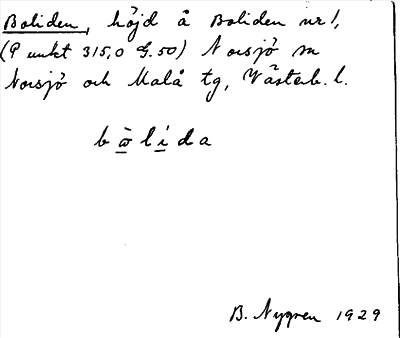 Boliden, höjd å Boliden nr 1,
(Punkt 315,0 G.50) Norsjö sn
Norsjö och Malå tg, Västerb. l.
bòlida
B. Nygren 1929